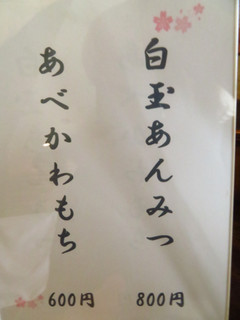 白玉あんみつ
800円
あべかわもち
600円